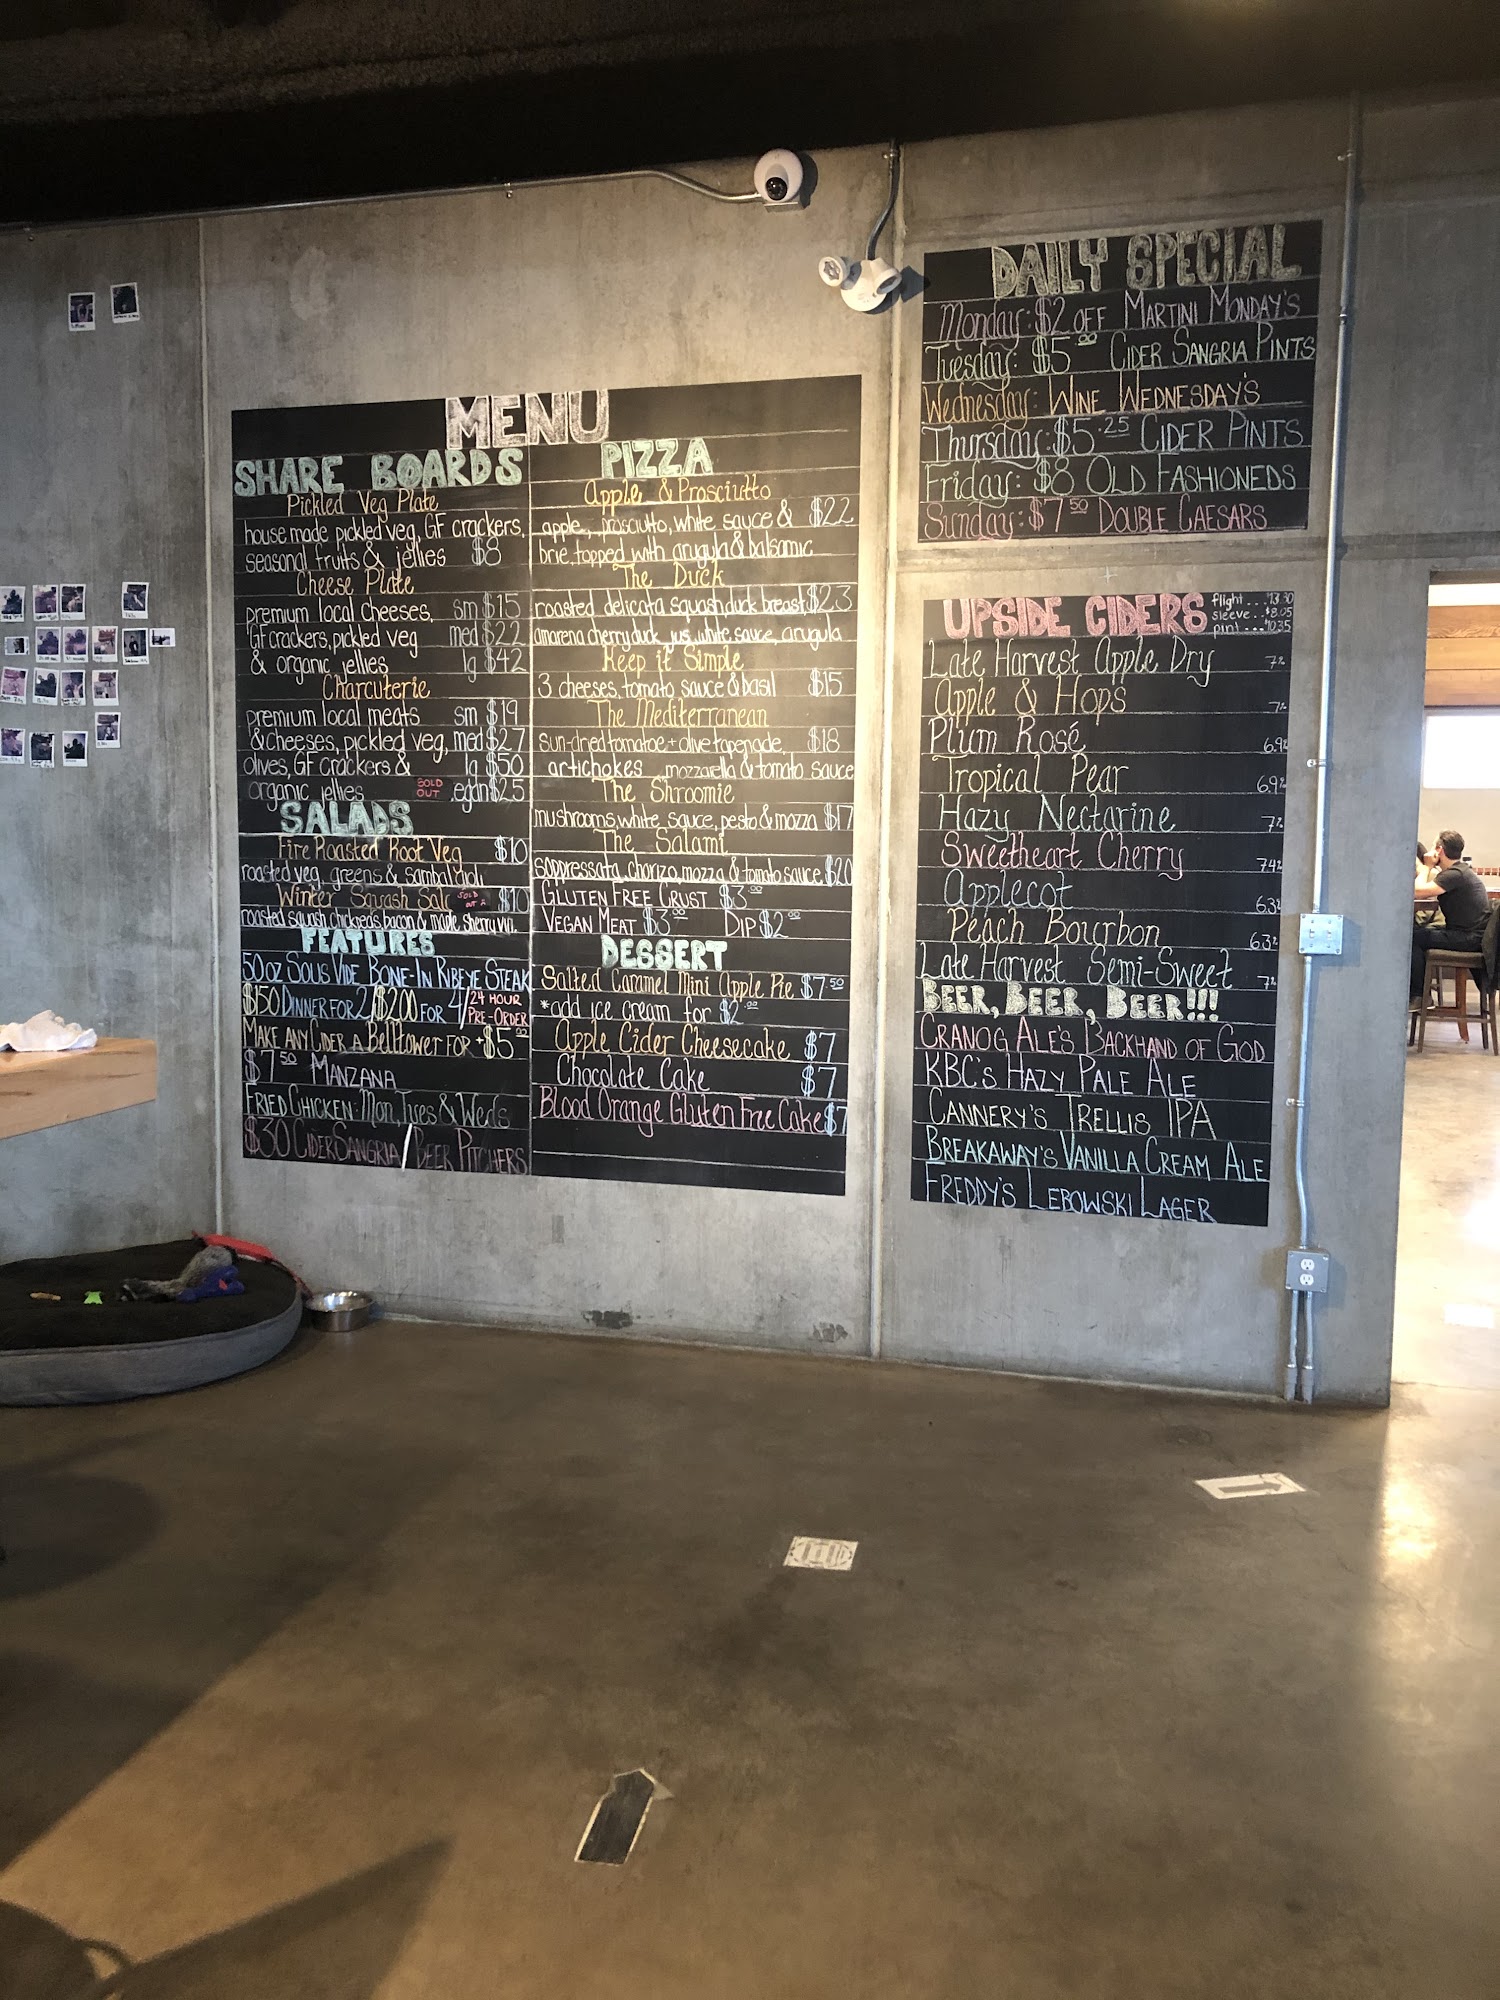 MENU
SHARE BOARDS
Pickled Veg Plate
house made pickled veg, GF crackers,
seasonal fruits & jellies $8
Cheese Plate
premium local cheeses, sm $15
GF crackers, pickled veg med $22
& organic jellies lg $42
Charcuterie
premium local meats sm $19
& cheeses, pickled veg, med $27
olives, GF crackers & lg $50
organic jellies SOLD OUT egan $25
SALADS
Fire Roasted Root Veg $10
roasted veg, greens & sambal
Winter Squash Sala SOLD OUT $10
roasted squash, chickpeas, bacon & maple sherry vin.
FEATURES
50 OZ SOUS VIDE BONE-IN RIBEYE STEAK
$150 DINNER FOR 2/$200 FOR 4/24 HOUR PRE-ORDER
MAKE ANY CIDER A BELLTOWER FOR +$5.00
$7.50 MANZANA
FRIED CHICKEN: Mon, Tues & Weds
$30 CIDER SANGRIA/BEER PITCHERS
PIZZA
Apple & Prosciutto
apple, prosciutto, white sauce & $22
brie, topped with arugula & balsamic
The Duck
roasted delicata squash, duck breast $23
amarena cherry, duck jus, white sauce, arugula
Keep it Simple
3 cheeses, tomato sauce & basil $15
The Mediterranean
sun-dried tomatoe + olive tapenade, $18
artichokes mozzarella & tomato sauce
The Shroomie
mushrooms, white sauce, pesto & mozza $17
The Salami
soppressata, chorizo, mozza & tomato sauce $20
GLUTEN FREE CRUST $3.00
VEGAN MEAT $3.00 DIP $2.00
DESSERT
Salted Caramel Mini Apple Pie $7.50
*add ice cream for $2.00
Apple Cider Cheesecake $7
Chocolate Cake $7
Blood Orange Gluten Free Cake $7
DAILY SPECIAL
Monday: $2 OFF MARTINI MONDAY'S
Tuesday: $5.00 CIDER SANGRIA PINTS
Wednesday: WINE WEDNESDAY'S
Thursday: $5.25 CIDER PINTS
Friday: $8 OLD FASHIONEDS
Sunday: $7.50 DOUBLE CAESARS
UPSIDE CIDERS
flight...$13.30
sleeve...$8.05
pint...$10.35
Late Harvest Apple Dry 7%
Apple & Hops 7%
Plum Rosé 6.9%
Tropical Pear 6.9%
Hazy Nectarine 7%
Sweetheart Cherry 7.4%
Applecot 6.3%
Peach Bourbon 6.3%
Late Harvest Semi-Sweet 7%
BEER, BEER, BEER!!!
CRANOG ALE'S BACKHAND OF GOD
KBC'S HAZY PALE ALE
CANNERY'S TRELLIS IPA
BREAKAWAY'S VANILLA CREAM ALE
FREDDY'S LEBOWSKI LAGER